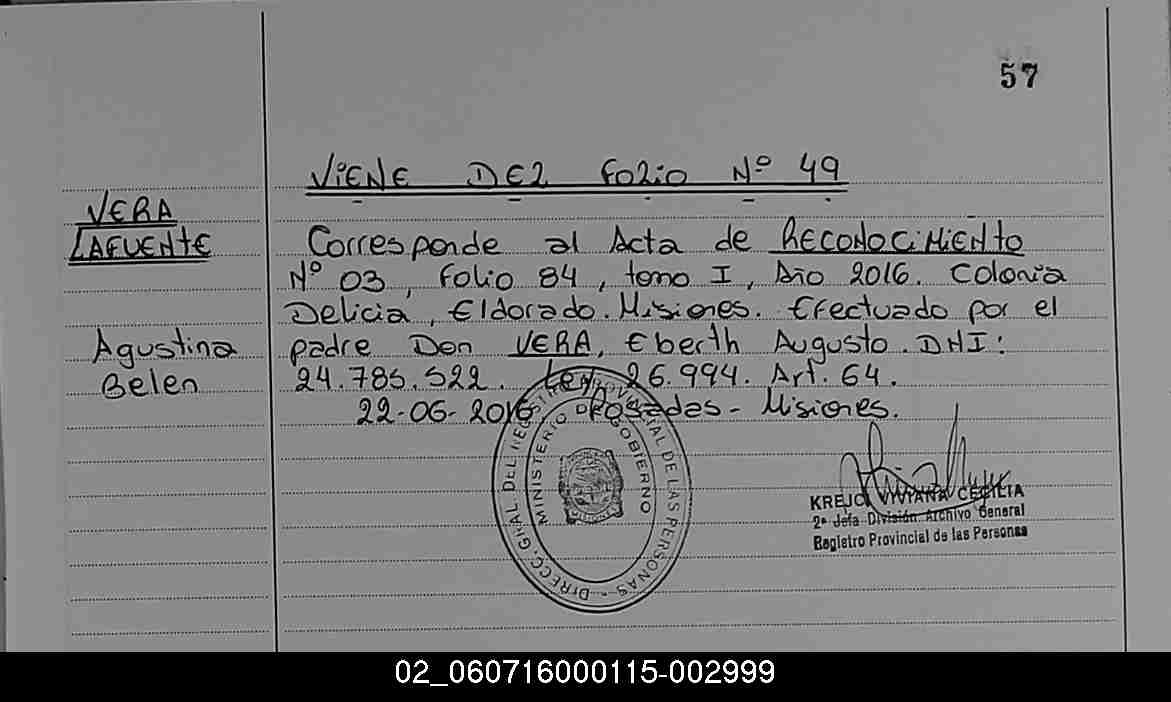 57
VIENE DEL FOLIO Nº 49
VERA
LAFUENTE
Agustina
Belen
Corresponde al Acta de RECONOCIMIENTO
Nº 03, Folio 84, tomo I, Año 2016. Colonia
Delicia, Eldorado. Misiones. Efectuado por el
padre Don VERA, Eberth Augusto. DNI:
24.785.522. Ley 26.994. Art. 64.
22-06-2016. Posadas - Misiones.
DIRECC. GRAL DEL REGISTRO PROVINCIAL DE LAS PERSONAS -
MINISTERIO DE GOBIERNO
KREJCI VIVIANA CECILIA
2ª Jefa División Archivo General
Registro Provincial de las Personas
02_060716000115-002999